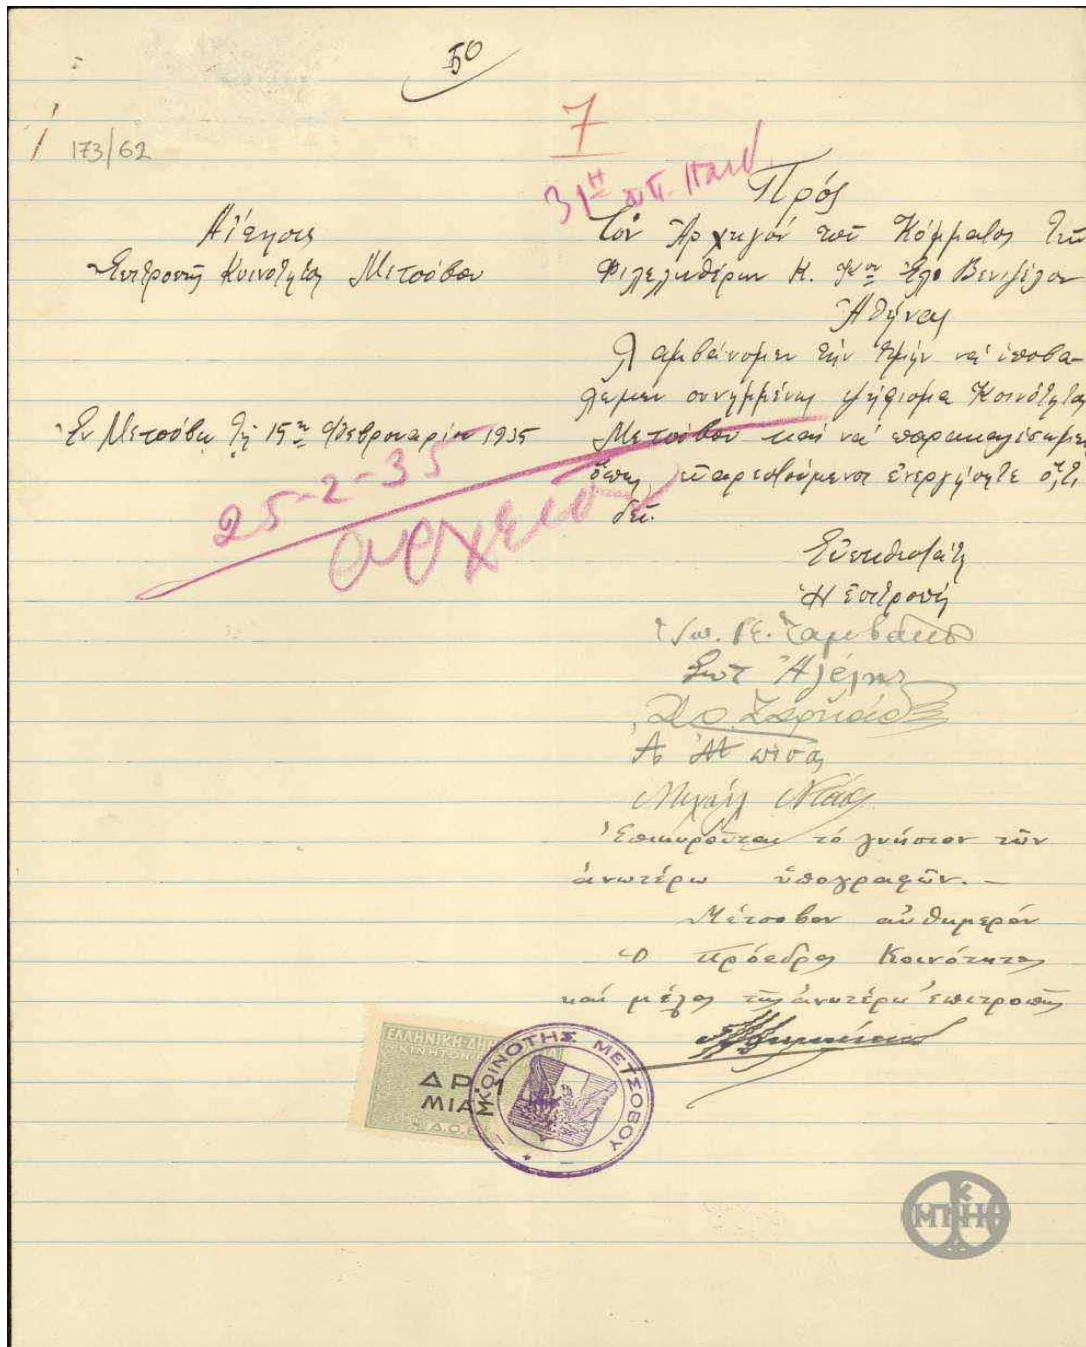 50
173/62
7
31η
Αἴτησις
Ἐπιτροπῆς Κοινότητος Μετσόβου
Ἐν Μετσόβῳ τῇ 15ῃ Φεβρουαρίου 1935
25-2-35
αρχείο
Πρός
Τόν Ἀρχηγόν τοῦ Κόμματος τῶν
Φιλελευθέρων Κ. Ἐλ. Βενιζέλον
Ἀθήνας
Λαμβάνομεν τήν τιμήν νά ὑποβά-
λωμεν συνημμένως ψήφισμα Κοινότητος
Μετσόβου καί νά παρακαλέσωμεν
ὅπως εὐαρεστούμενοι ἐνεργήσητε ὅ,τι
δεῖ.
Εὐπειθέστατοι
Ἡ Ἐπιτροπή
Μιχαήλ
Ἐπικυροῦται τό γνήσιον τῶν
ἀνωτέρω ὑπογραφῶν.-
Μέτσοβον αὐθημερόν
Ὁ πρόεδρος Κοινότητος
καί μέλος τῆς ἀνωτέρω ἐπιτροπῆς
ΕΛΛΗΝΙΚΗ
ΚΙΝΗΤΟΝ
ΔΡ. 1
ΜΙΑ
ΚΟΙΝΟΤΗΣ ΜΕΤΣΟΒΟΥ